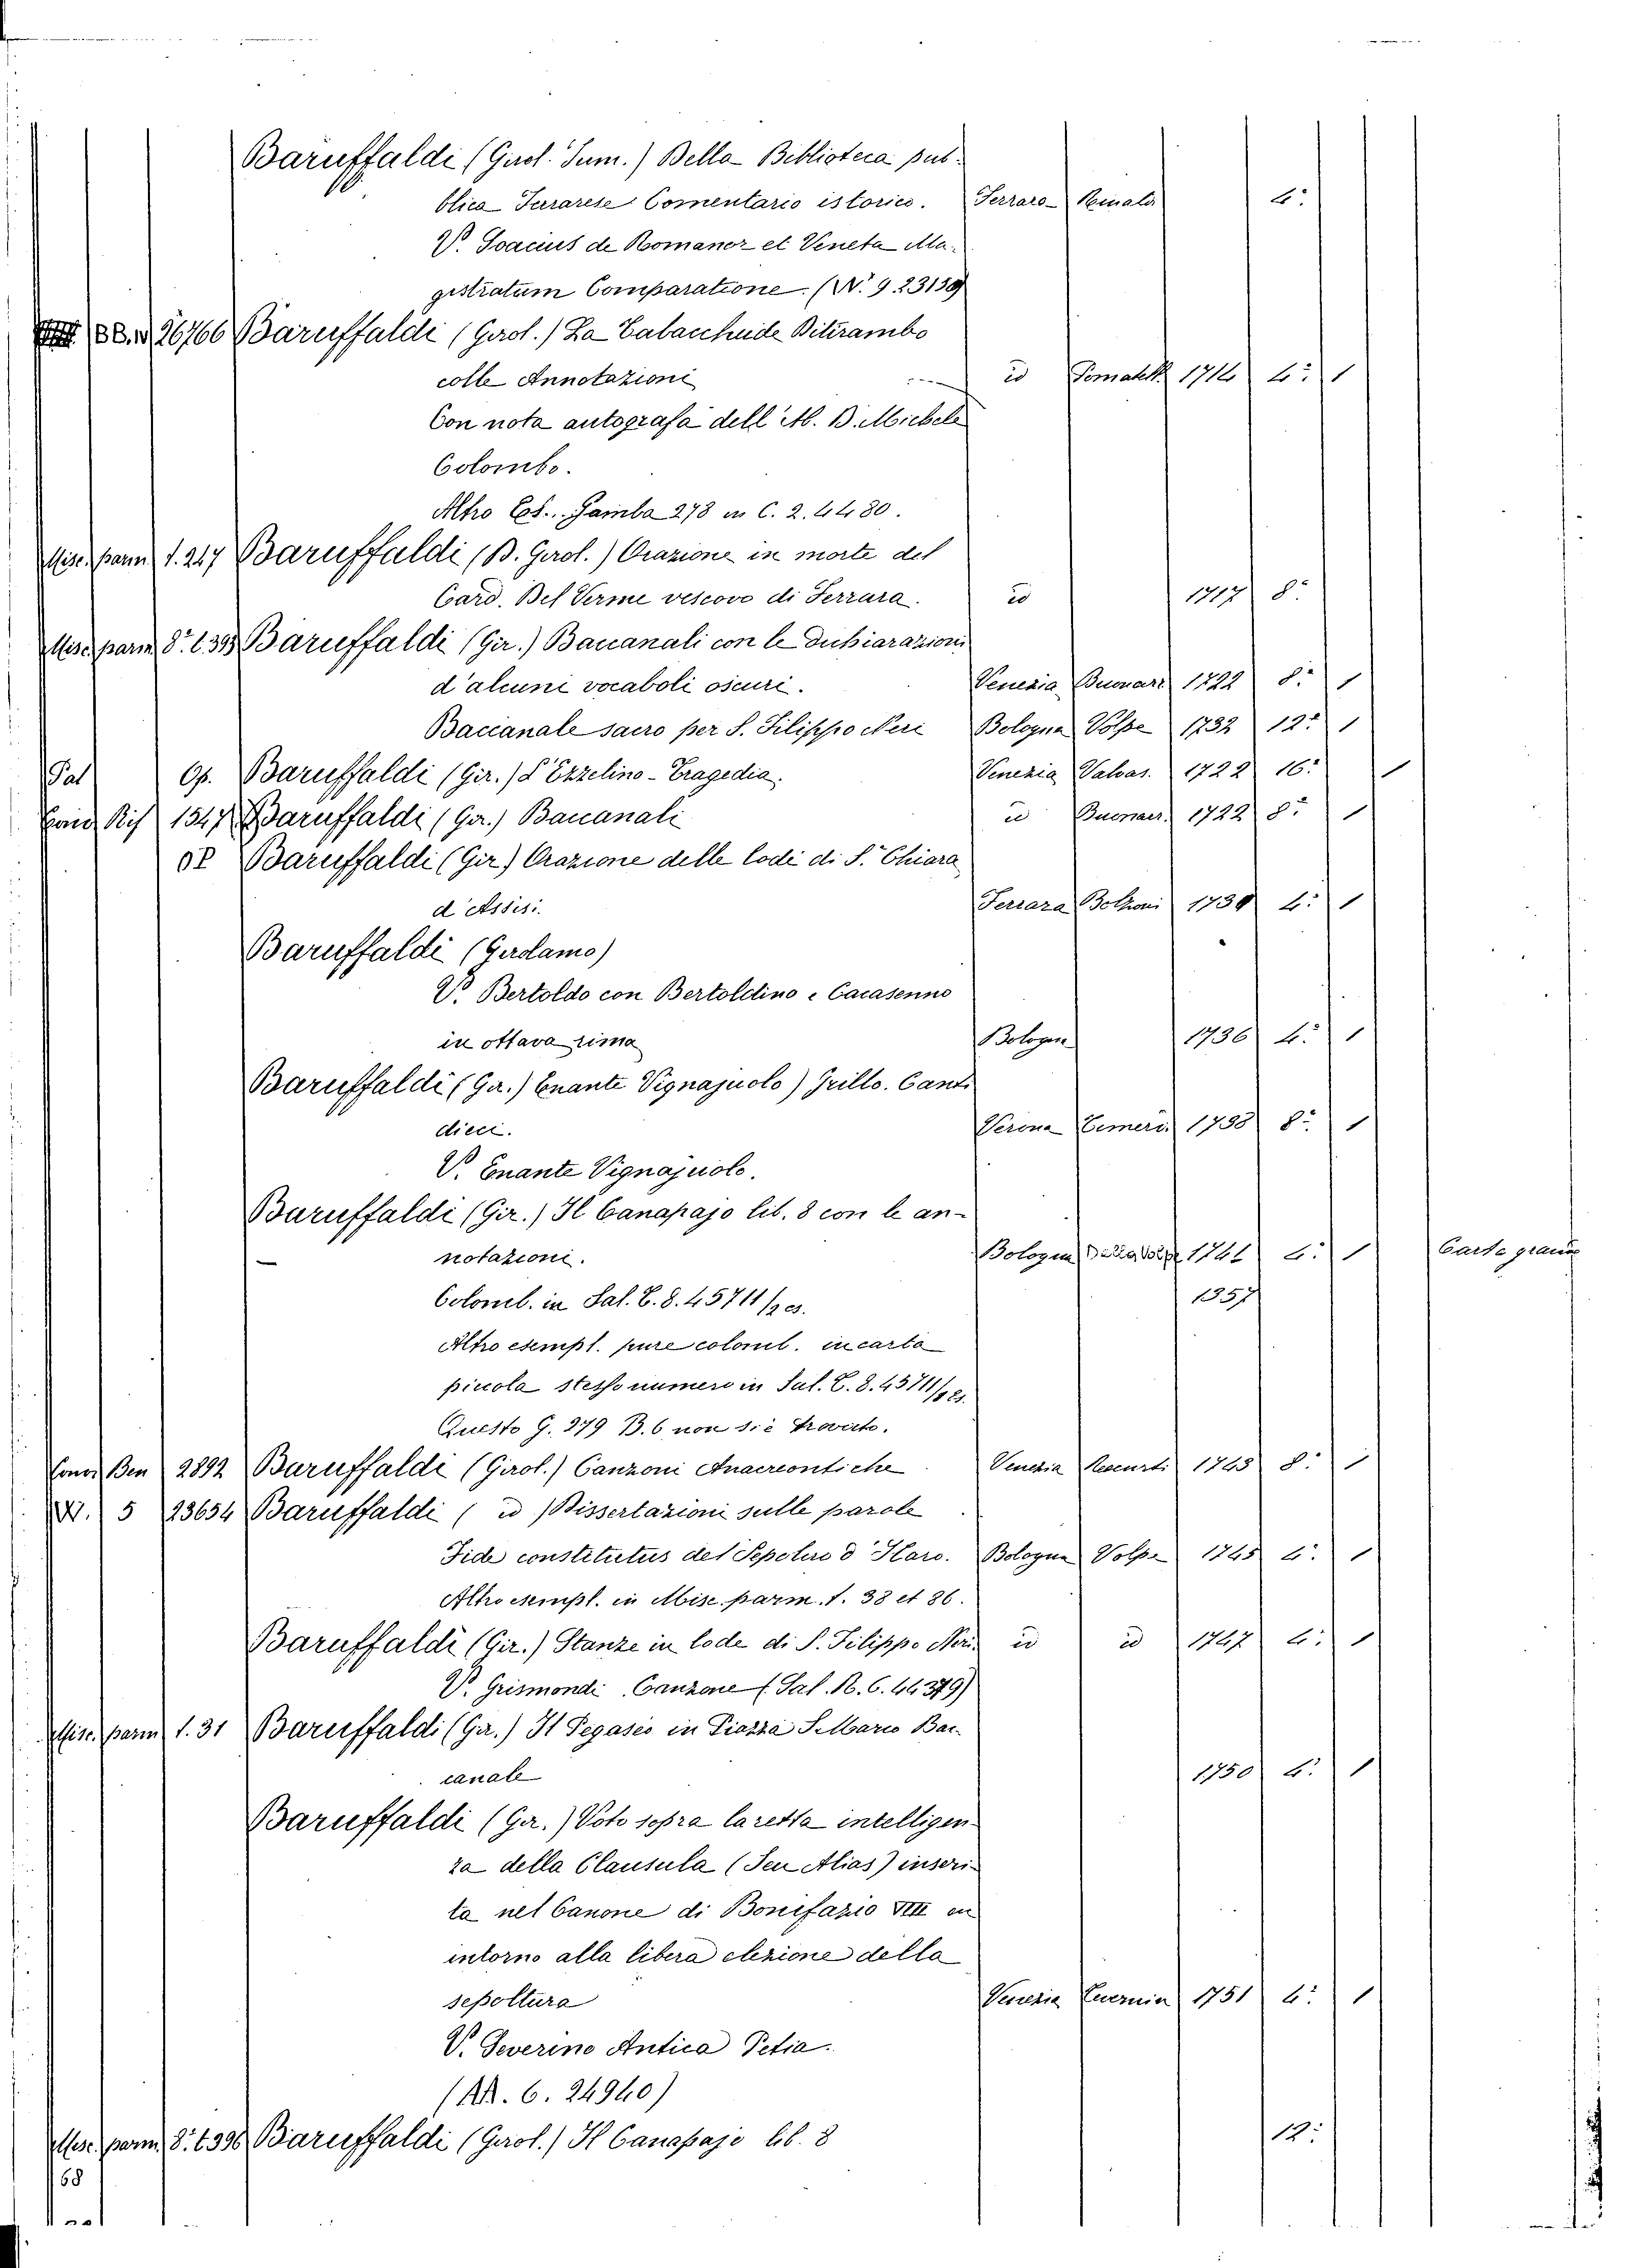 Baruffaldi (Girol. Jun.) Della Biblioteca pub-
blica Ferrarese Comentario istorico. Ferrara Rinaldi 4°
V. Soacius de Romanor et Veneta Ma-
gistratum Comparatione. (W. 9. 23159)
BB. 26766 Baruffaldi (Girol.) La Tabaccheide Ditirambo
colle Annotazioni id Pomatelli 1714 4° 1
Con nota autografa dell' Ab. D. Michele
Colombo.
Altro Es. Gamba 278 in C. 2. 4480.
Misc. parm f. 247 Baruffaldi (D. Girol.) Orazione in morte del
Card. Del Verme vescovo di Ferrara. id 1717 8°
Misc. parm 8° t. 393 Baruffaldi (Gir.) Baccanali con le dichiarazioni
d'alcuni vocaboli oscuri. Venezia Buonarr 1722 8° 1
Baccanale sacro per S. Filippo Neri Bologna Volpe 1732 12° 1
Pal Op. Baruffaldi (Gir.) L'Ezzelino - Tragedia. Venezia Valvas. 1722 16° 1
1547 Baruffaldi (Gir.) Baccanali id Buonarr. 1722 8° 1
Baruffaldi (Gir) Orazione delle lodi di S. Chiara
d'Assisi. Ferrara Bolzoni 1734 4° 1
Baruffaldi (Girolamo)
V. Bertoldo con Bertoldino e Cacasenno
in ottava rima Bologna 1736 4° 1
Baruffaldi (Gir.) Enante Vignajuolo) Grillo. Canti
dieci. Verona 1738 8° 1
V. Enante Vignajuolo.
Baruffaldi (Gir.) Il Canapajo lib. 8 con le an-
notazioni. Bologna Della Volpe 1741 4° 1 Carta grande
Colomb. in Sal. E. 8. 45711/2 es. 1357
Altro esempl. pure colomb. in carta
piccola stesso numero in Sal. E. 8. 45711/2 es.
Questo G. 279 B. 6 non si è trovato.
Ben 2892 Baruffaldi (Girol.) Canzoni Anacreontiche Venezia Recurti 1743 8° 1
W. 5 23654 Baruffaldi ( id ) Dissertazioni sulle parole
Fide constitutus del Sepolcro d'Haro. Bologna Volpe 1745 4° 1
Altro esempl. in Misc. parm. f. 38 et 86.
Baruffaldi (Gir.) Stanze in lode di S. Filippo Neri id id 1747 4° 1
V. Grismondi Canzone (Sal. R. 6. 44379)
Misc. parm f. 31 Baruffaldi (Gir.) Il Pegaseo in Piazza S. Marco Bac-
canale 1750 4° 1
Baruffaldi (Gir.) Voto sopra la retta intelligen-
za della Clausula (Seu Alias) inseri-
ta nel Canone di Bonifazio VIII in
intorno alla libera elezione della
sepoltura Venezia 1751 4° 1
V. Severino Antica Petia.
(AA. 6. 24940)
Misc. parm 8° t. 398 Baruffaldi (Girol.) Il Canapajo lib. 8 12°
68